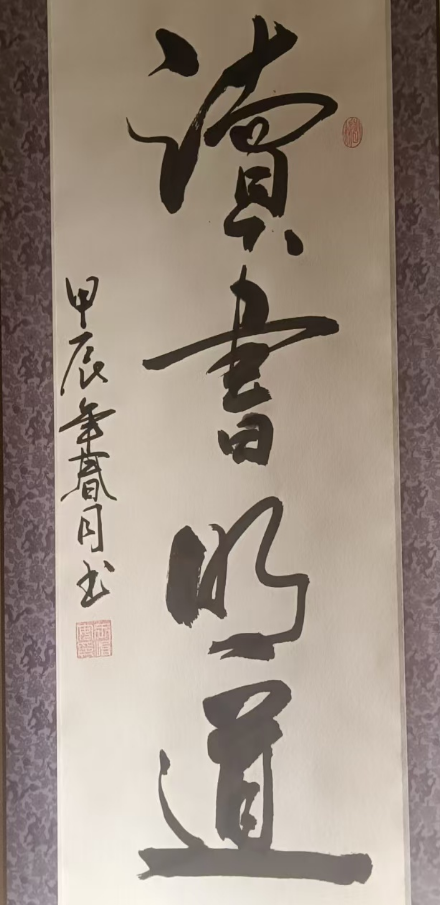 讀書明道
甲辰年春月书